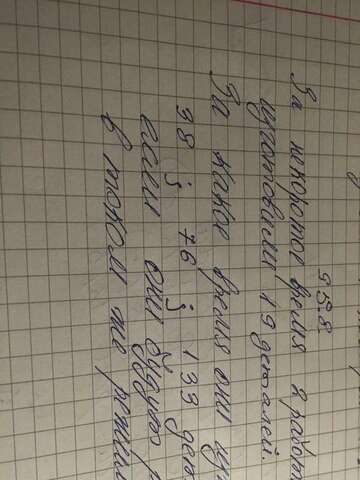 95.8
За некоторое время 8 рабоч
изготовили 19 деталей.
За какое время они изг
38 ; 76 ; 133 дет
если они будут р
в таком же режим